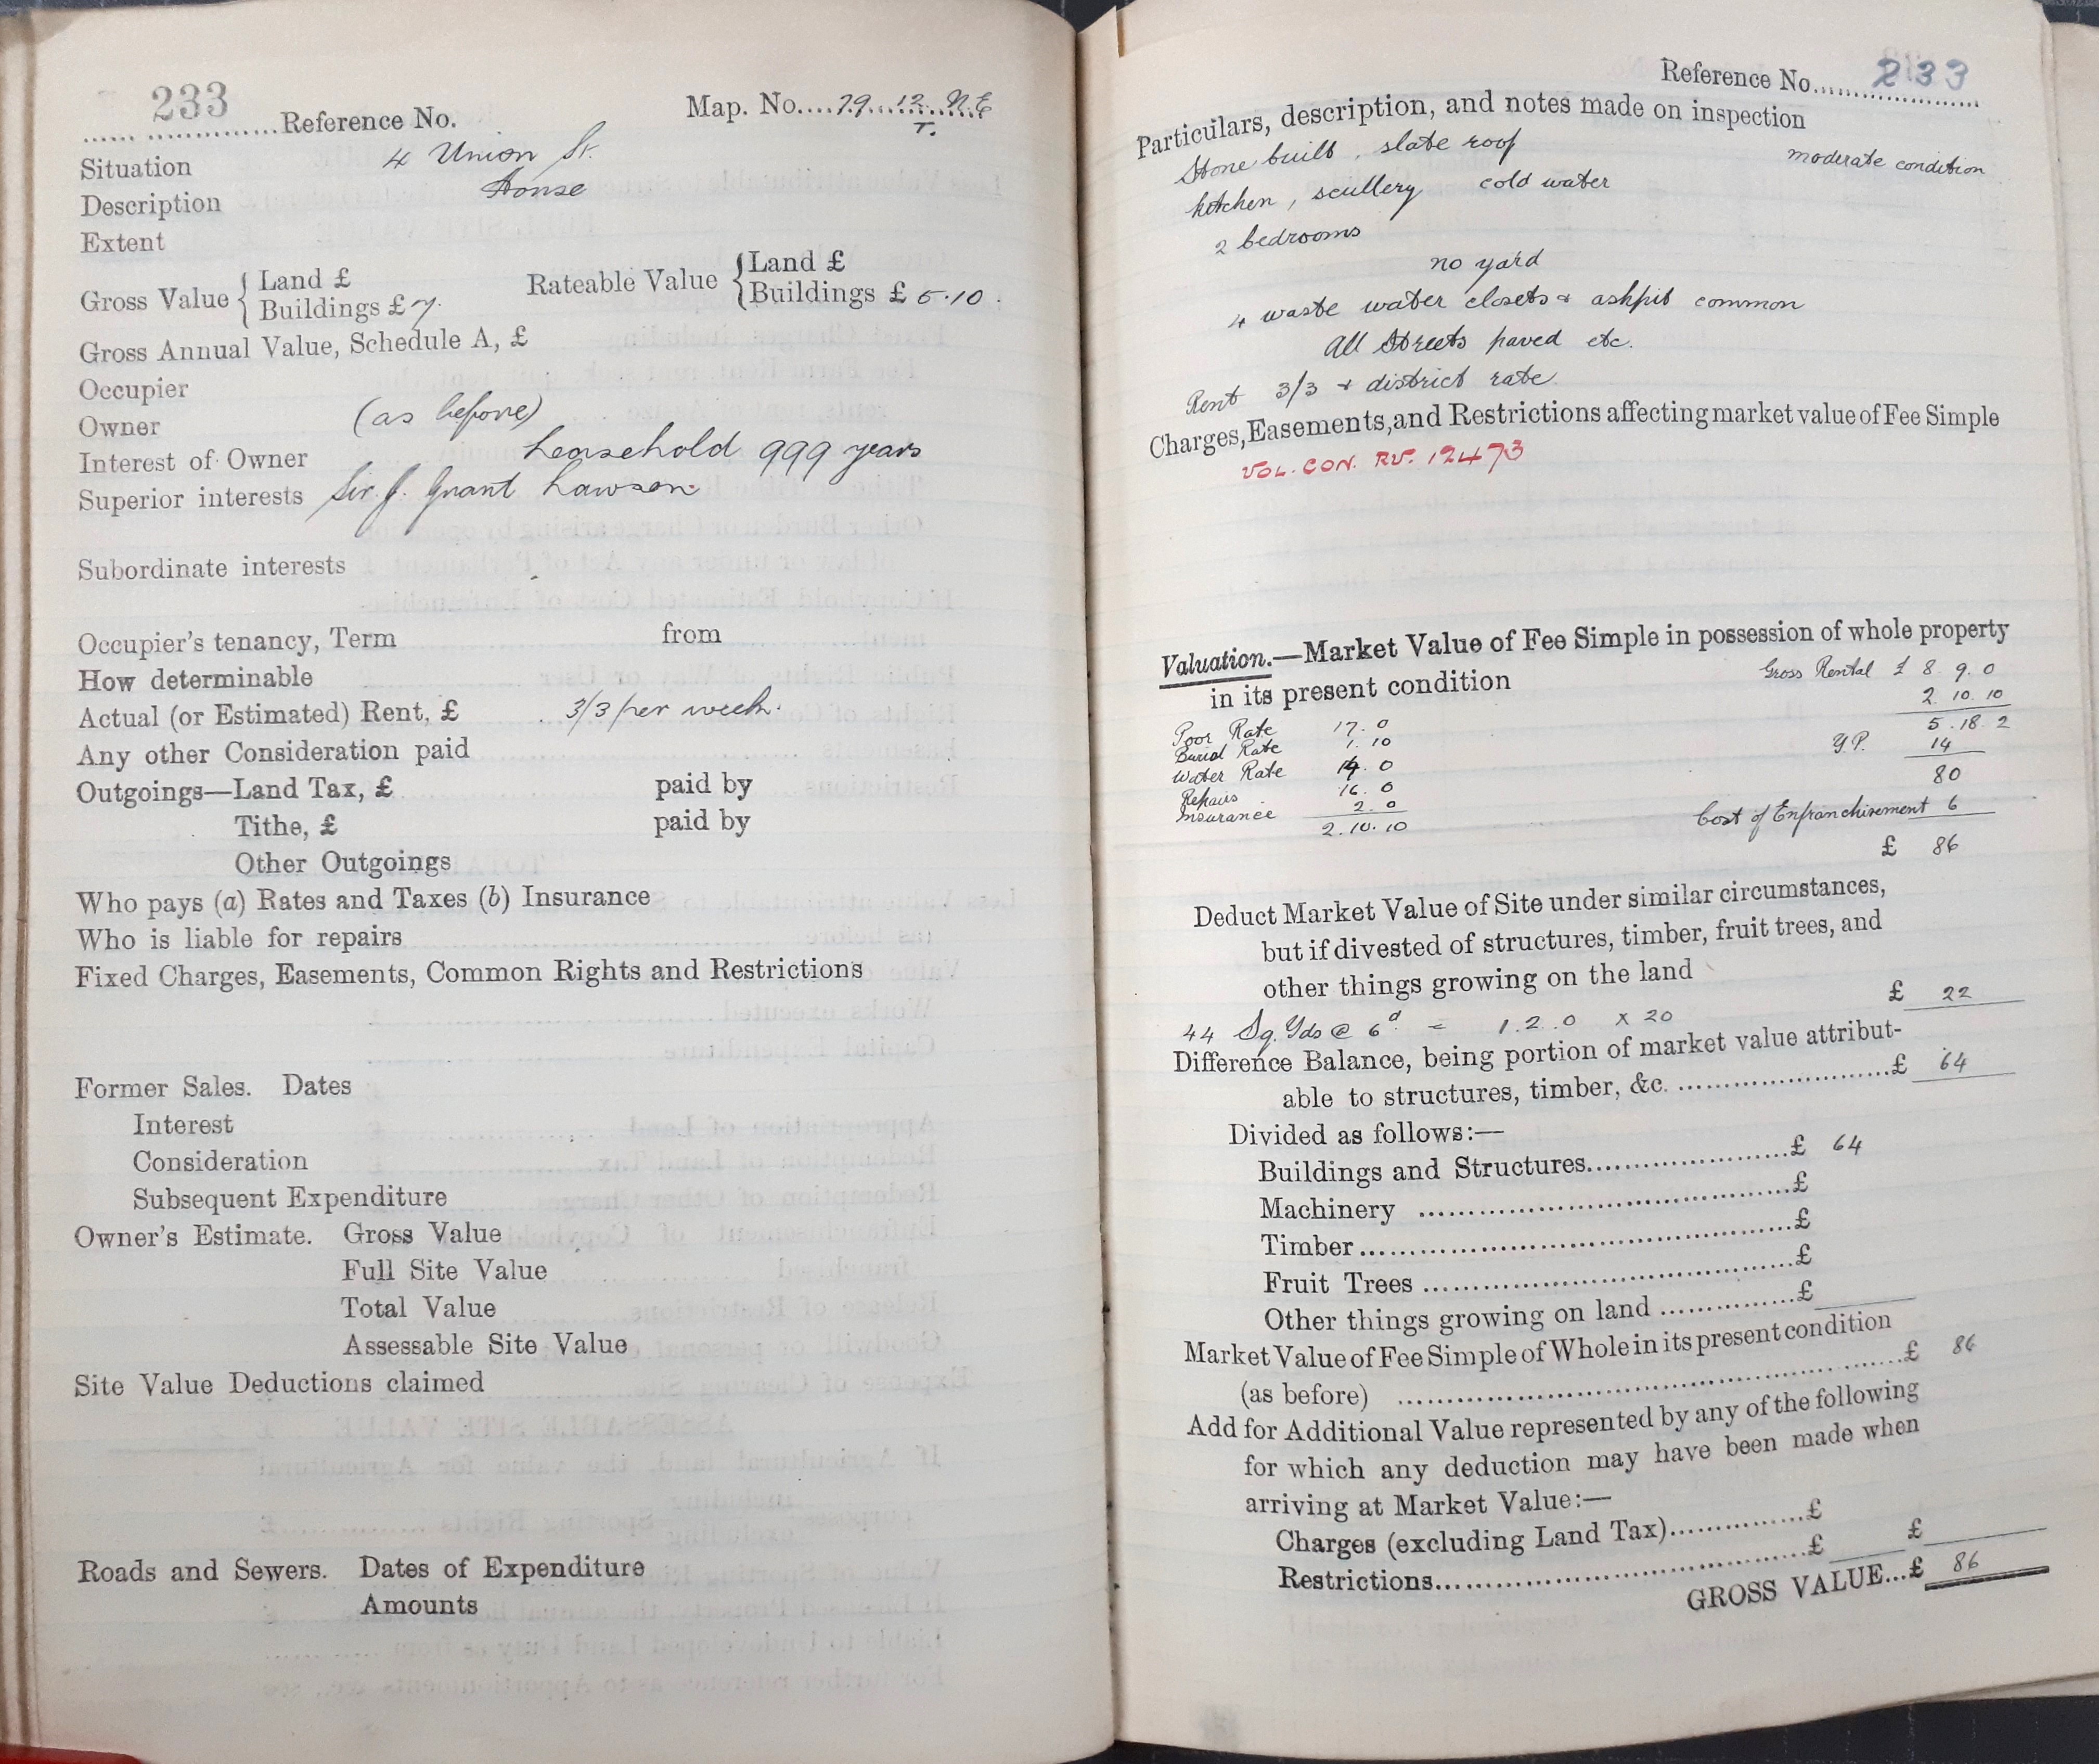 233 Reference No. Map. No. 79. 12. N.E
T.
Situation 4 Union St.
Description House
Extent
Gross Value { Land £ Rateable Value { Land £
Buildings £ 7. Buildings £ 5.10.
Gross Annual Value, Schedule A, £
Occupier
Owner (as before)
Interest of Owner Leasehold 999 years
Superior interests Sir J. Grant Lawson.
Subordinate interests
Occupier's tenancy, Term from
How determinable
Actual (or Estimated) Rent, £ 3/3 per week.
Any other Consideration paid
Outgoings—Land Tax, £ paid by
Tithe, £ paid by
Other Outgoings
Who pays (a) Rates and Taxes (b) Insurance
Who is liable for repairs
Fixed Charges, Easements, Common Rights and Restrictions
Former Sales. Dates
Interest
Consideration
Subsequent Expenditure
Owner's Estimate. Gross Value
Full Site Value
Total Value
Assessable Site Value
Site Value Deductions claimed
Roads and Sewers. Dates of Expenditure
Amounts
Reference No. 233
Particulars, description, and notes made on inspection
Stone built, slate roof moderate condition
kitchen, scullery cold water
2 bedrooms
no yard
4 waste water closets & ashpit common
All Streets paved etc.
Rent 3/3 + district rate.
Charges, Easements, and Restrictions affecting market value of Fee Simple
VOL. CON. RV. 12473
Valuation.—Market Value of Fee Simple in possession of whole property
in its present condition Gross Rental £ 8. 9. 0
2. 10. 10
Poor Rate 17. 0 5. 18. 2
Burial Rate 1. 10 Y.P. 14
Water Rate 14. 0 80
Repairs 16. 0
Insurance 2. 0 Cost of Enfranchisement 6
2. 10. 10
£ 86
Deduct Market Value of Site under similar circumstances,
but if divested of structures, timber, fruit trees, and
other things growing on the land £ 22
44 Sq. Yds @ 6d. = 1. 2. 0 x 20
Difference Balance, being portion of market value attribut-
able to structures, timber, &c. £ 64
Divided as follows:—
Buildings and Structures £ 64
Machinery £
Timber £
Fruit Trees £
Other things growing on land £
Market Value of Fee Simple of Whole in its present condition
(as before) £ 86
Add for Additional Value represented by any of the following
for which any deduction may have been made when
arriving at Market Value:—
Charges (excluding Land Tax) £
Restrictions £ £
GROSS VALUE...£ 86